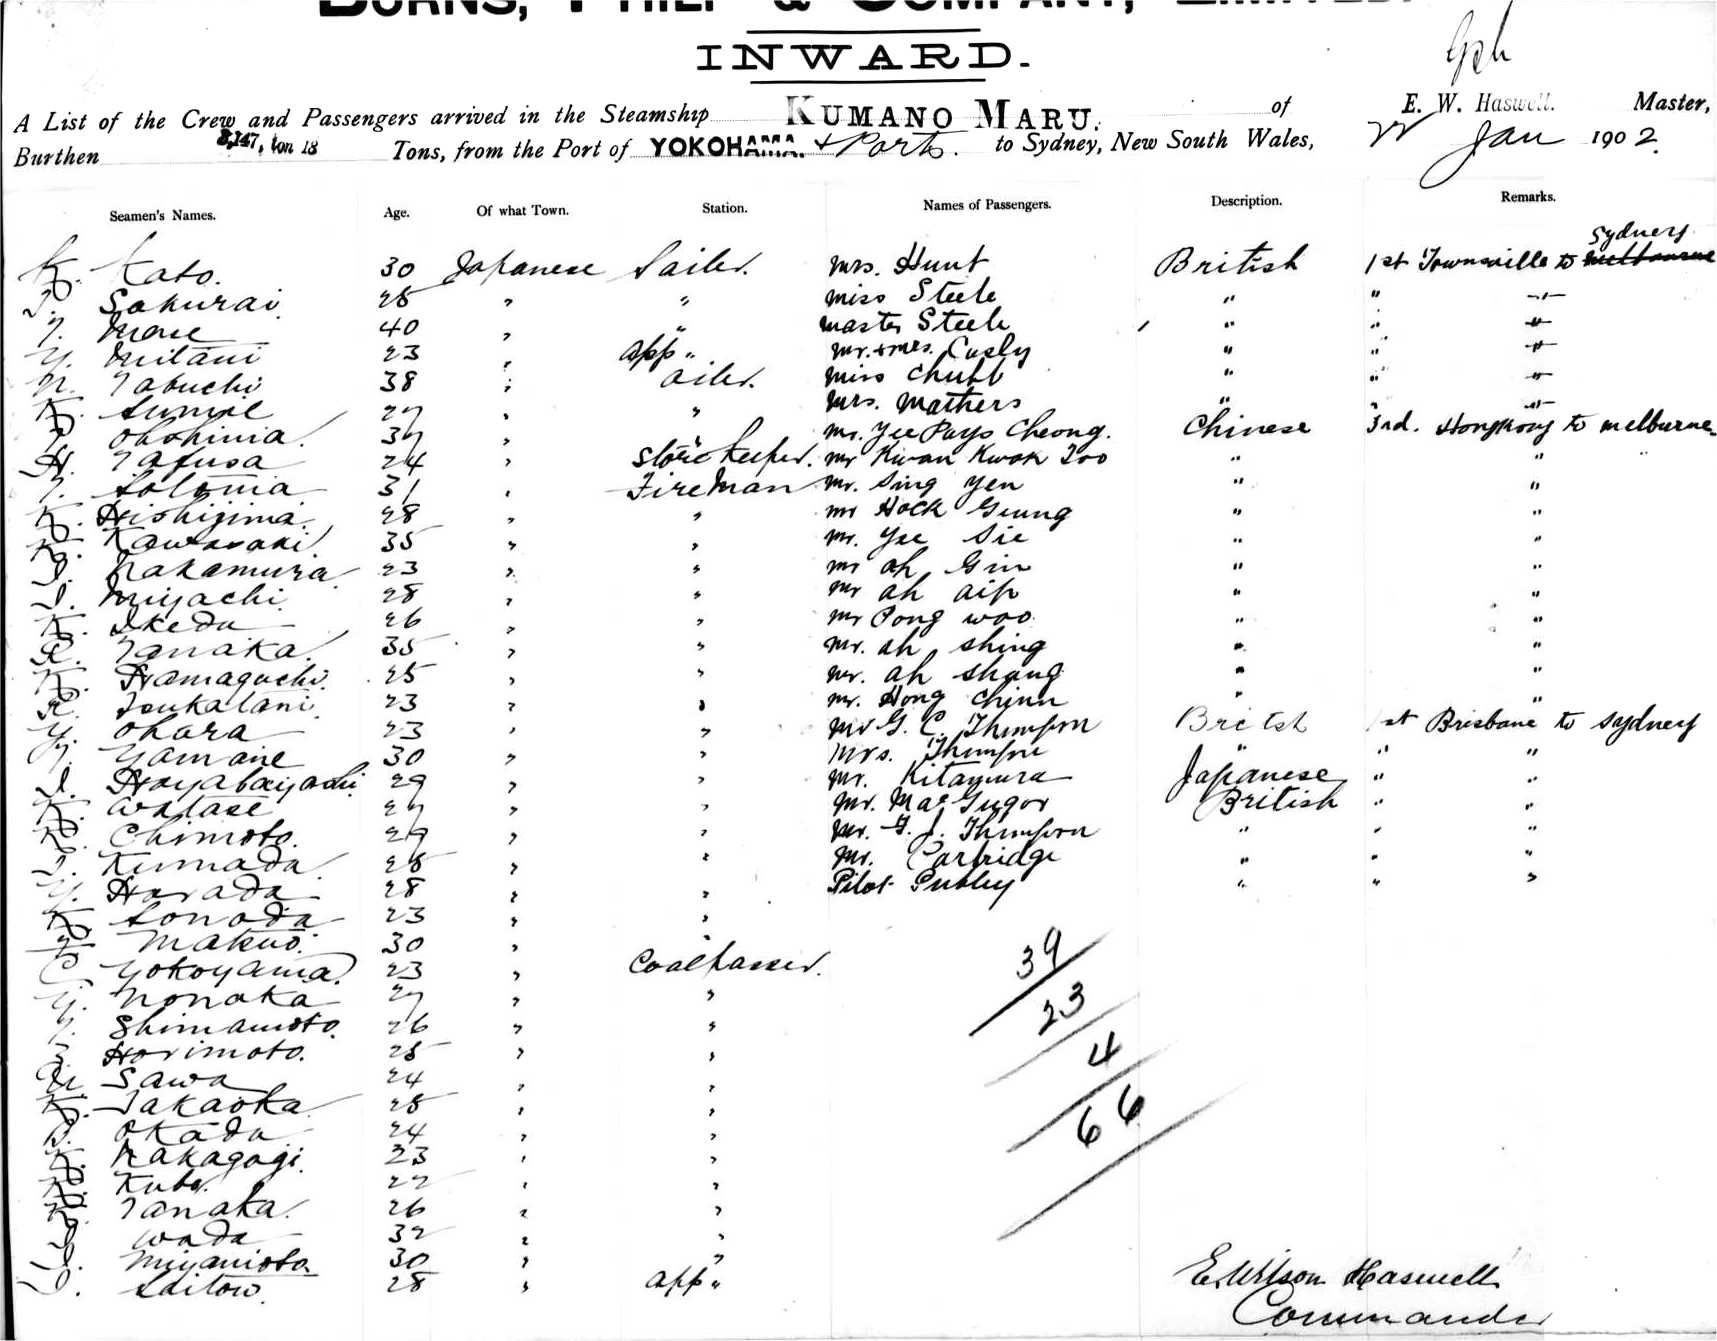 BURNS, PHILP & COMPANY, LIMITED.
INWARD.
A List of the Crew and Passengers arrived in the Steamship KUMANO MARU. of E. W. Haswell. Master,
Burthen Tons, from the Port of YOKOHAMA. & Ports. to Sydney, New South Wales, Jan 1902.
Seamen's Names. Age. Of what Town. Station. Names of Passengers. Description. Remarks.
Sydney
K. Kato. 30 Japanese Sailor. Mrs. Hunt British 1st Townsville to Melbourne
Sakurai. 25 " " Miss Steele " " "
Y. More 40 " " Master Steele " " "
Y. Mitani 23 " App " Mr. & Mrs. Cusly " " "
N. Tabuchi 38 " Oiler. Miss Chubb " " "
K. 27 " " Mrs. Mathers " " "
Ohshima. 37 " " Mr. Yee Pays Cheong. Chinese 3rd. Hongkong to Melbourne
H. Tafusa 24 " Store keeper. Mr Kwan Kwok Too " "
31 " Fireman Mr. Sing Yen " "
K. Hishijima. 28 " " Mr Hock Geung " "
K. Kawasaki. 35 " " Mr. Yee Sie " "
I. Nakamura 23 " " Mr Ah Gin " "
I. Miyachi 28 " " Mr Ah Aip " "
K. Ikeda 26 " " Mr Pong Woo " "
R. Tanaka. 35 " " Mr. Ah Shing " "
K. Hamaguchi. 25 " " Mr. Ah Shang " "
R. Tsukatani. 23 " " Mr. Hong Chinn " "
Y. Ohara 23 " " Mr G. C. Thompson British 1st Brisbane to Sydney
Y. Yamane 30 " " Mrs. Thompson " " "
I. 29 " " Mr. Kitamura Japanese " "
K. Watase 27 " " Mr. MacGregor British " "
K. Chimoto. 29 " " Mr. G. J. Thompson " " "
Kumada 25 " " Mr. Partridge " " "
Y. Harada 28 " " Pilot " " "
K. Sonoda 23 " "
Makuo. 30 " "
Yokoyama. 23 " Coalpasser.
Y. Nonaka 27 " "
Y. Shimamoto. 26 " "
Horimoto. 25 " "
Sawa 24 " "
K. Takaoka 25 " "
S. Okada 24 " "
K. Nakagagi. 23 " "
K. Kubo. 22 " "
K. Tanaka. 26 " "
Wada 32 " "
Miyamoto. 30 " "
Saitow. 28 " App "
39
23
4
66
E. Wilson Haswell
Commander